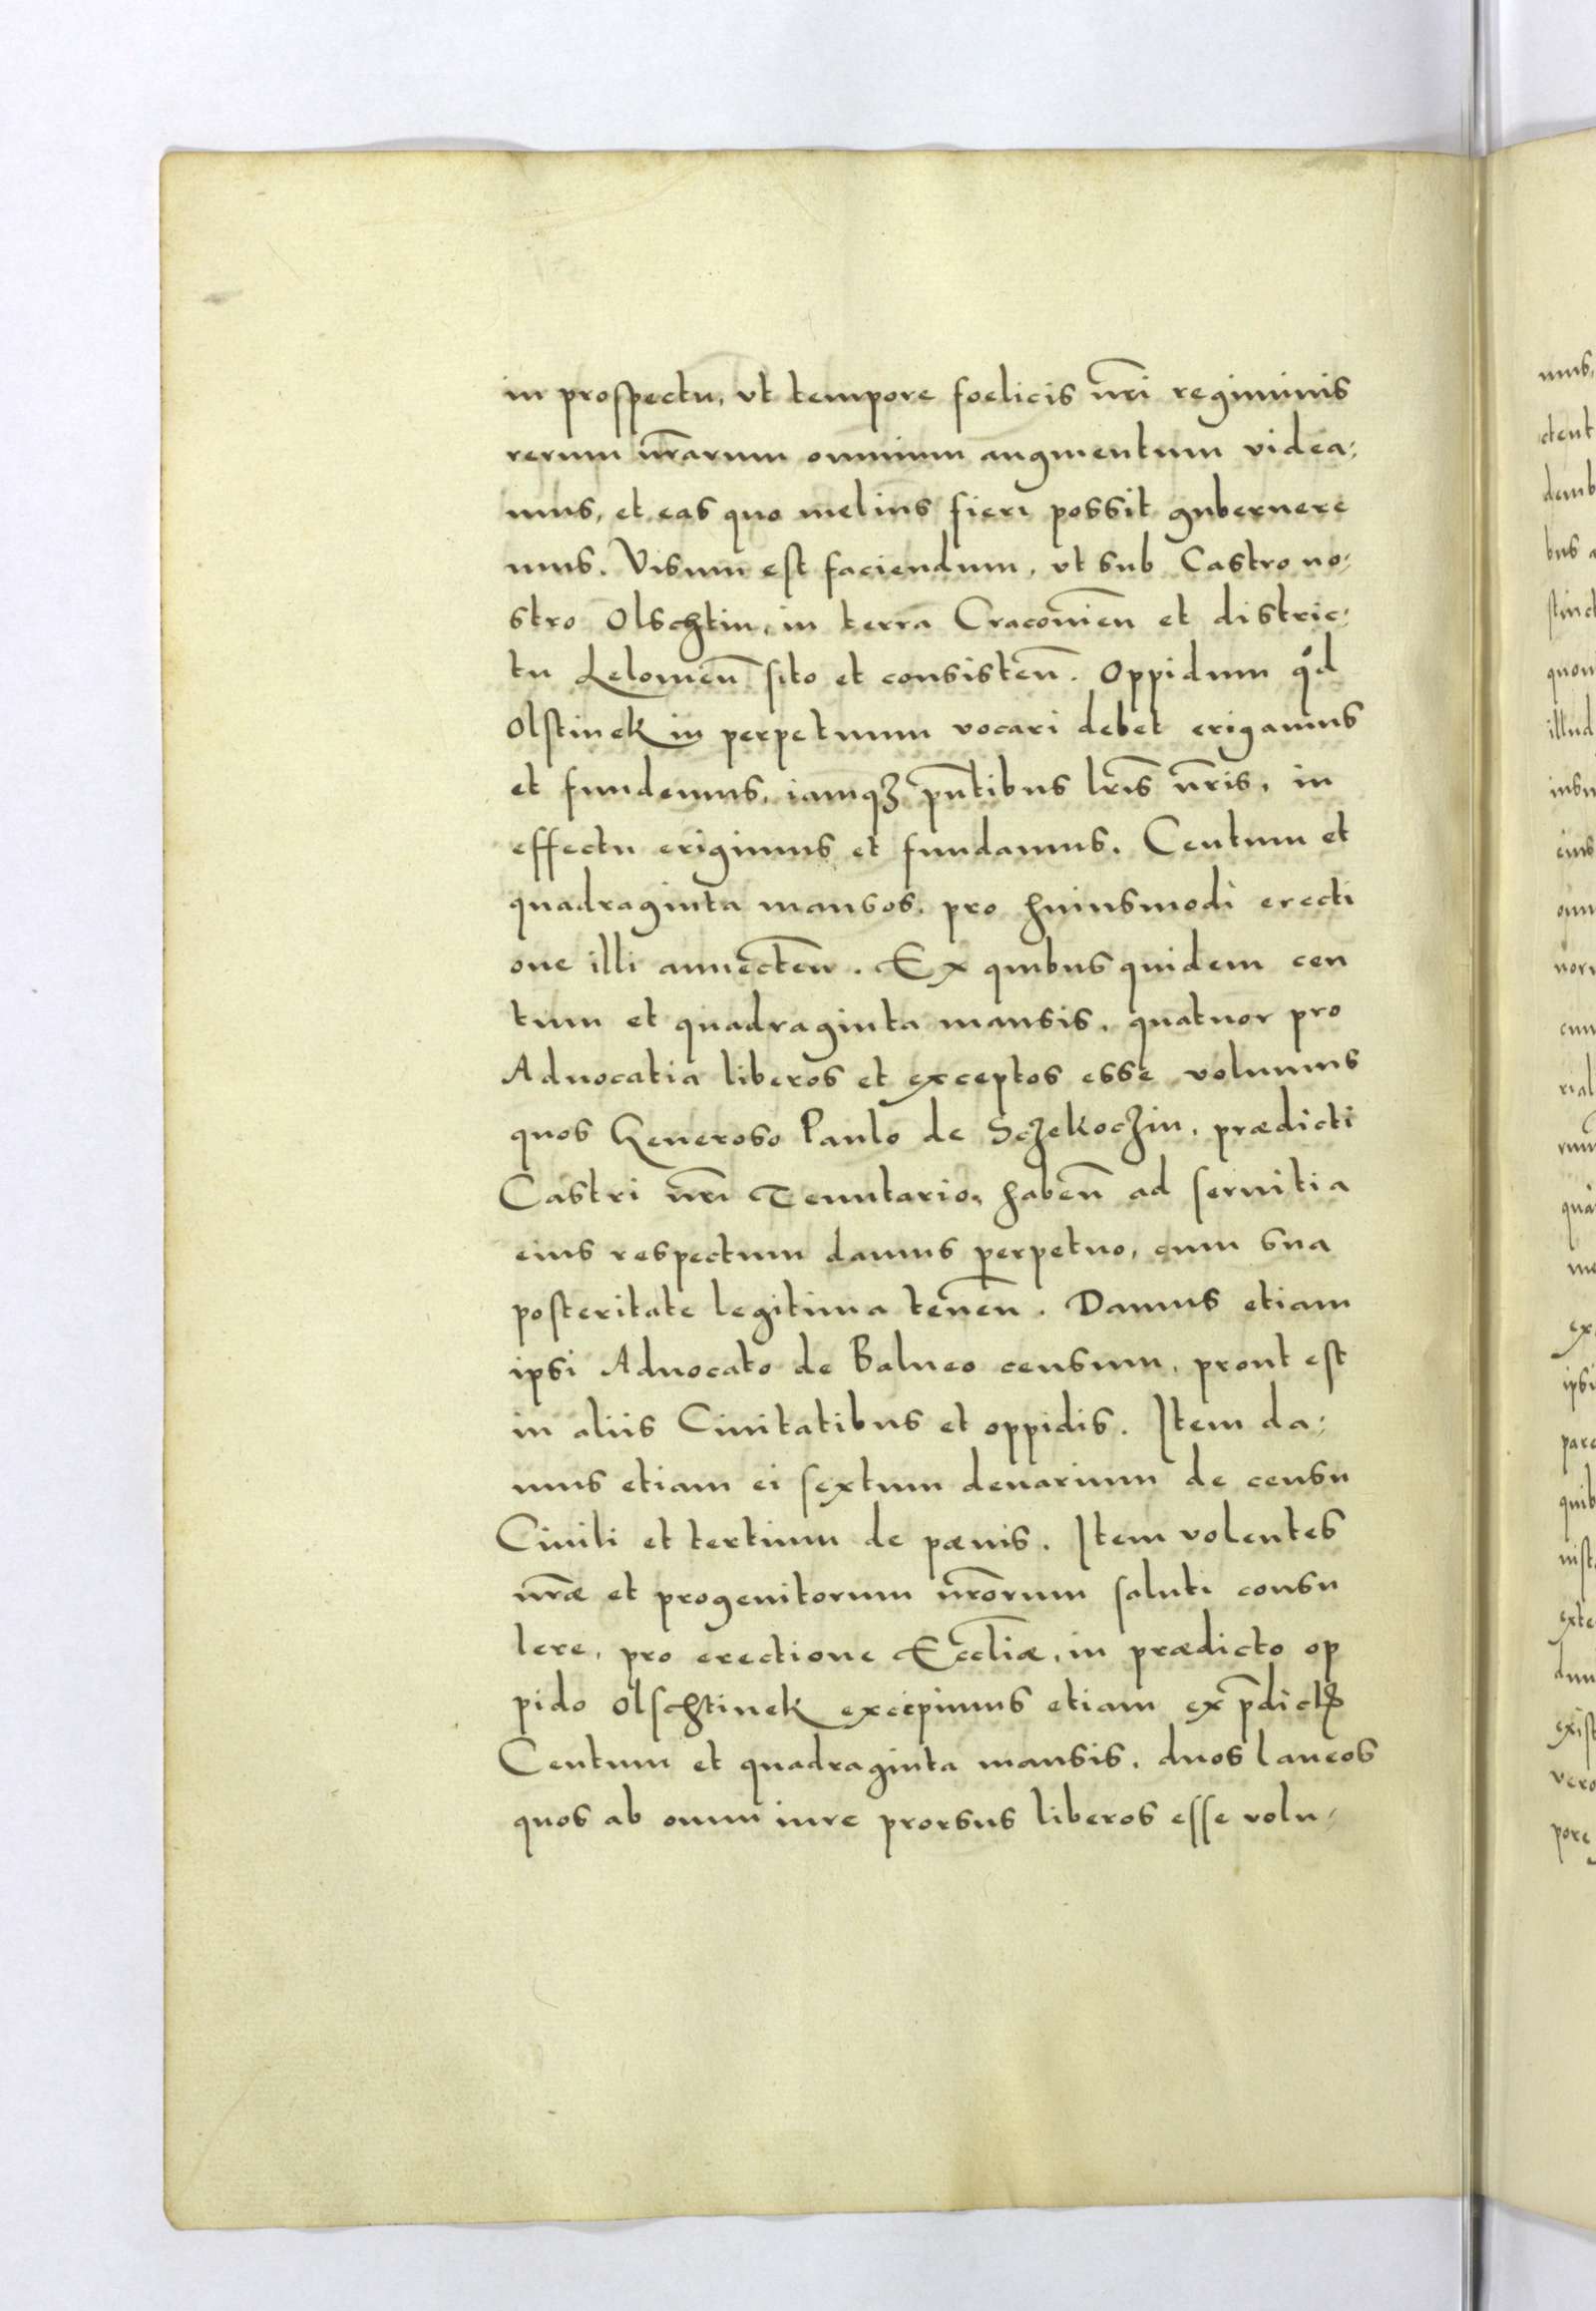 in prospectu, vt tempore foelicis nr̃i regiminis
rerum nr̃arum omnium augmentum videa:
mus, et eas quo melius fieri possit gubernere
mus. Visum est faciendum, vt sub Castro no:
stro Olschtin, in terra Cracouien̄ et distric:
tu Lelouien̄ sito et consisten̄. Oppidum qͦd
Olstinek in perpetuum vocari debet erigamus
et fundemus, iamqꝫ pn̄tibus lr̃is nr̃is, in
effectu erigimus et fundamus. Centum et
quadraginta mansos, pro huiusmodi erecti
one illi annecten̄. Ex quibus quidem cen
tum et quadraginta mansis, quatuor pro
Aduocatia liberos et exceptos esse volumus
quos Generoso Paulo de Sczekoczin, prædicti
Castri nr̃i Tenutario, haben̄ ad seruitia
eius respectum damus perpetuo, cum sua
posteritate legitima tenen̄. Damus etiam
ipsi Aduocato de Balneo censum, prout est
in aliis Ciuitatibus et oppidis. Item da:
mus etiam ei sextum denarium de censu
Ciuili et tertium de pænis. Item volentes
nr̃æ et progenitorum nr̃orum saluti consu
lere, pro erectione Eccl̃iæ, in prædicto op
pido Olschtinek excipimus etiam ex p̄dictꝭ
Centum et quadraginta mansis, duos laneos
quos ab omni iure prorsus liberos esse volu: